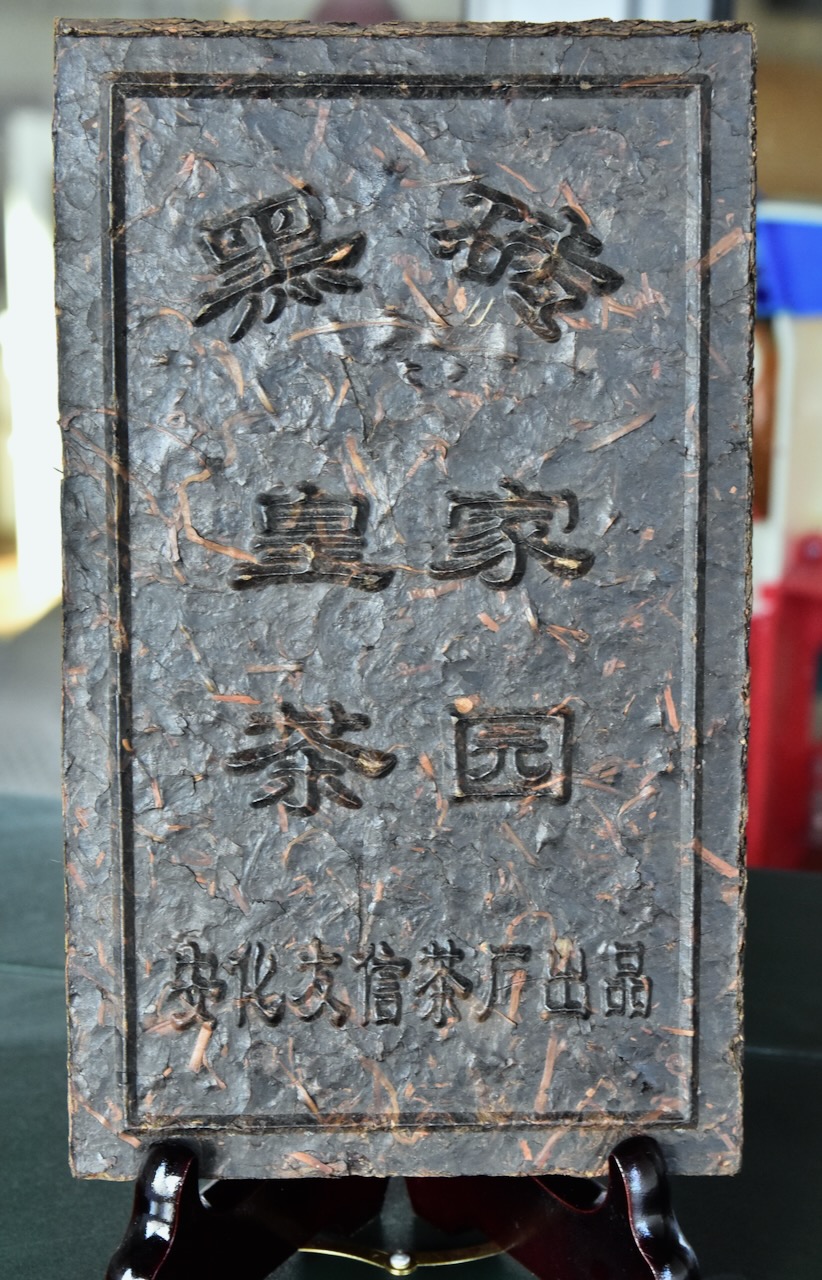 黑砖
皇家
茶园
安化友信茶厂出品